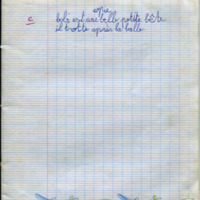 copie
c bobi est une belle petite bête
il trotte après la balle